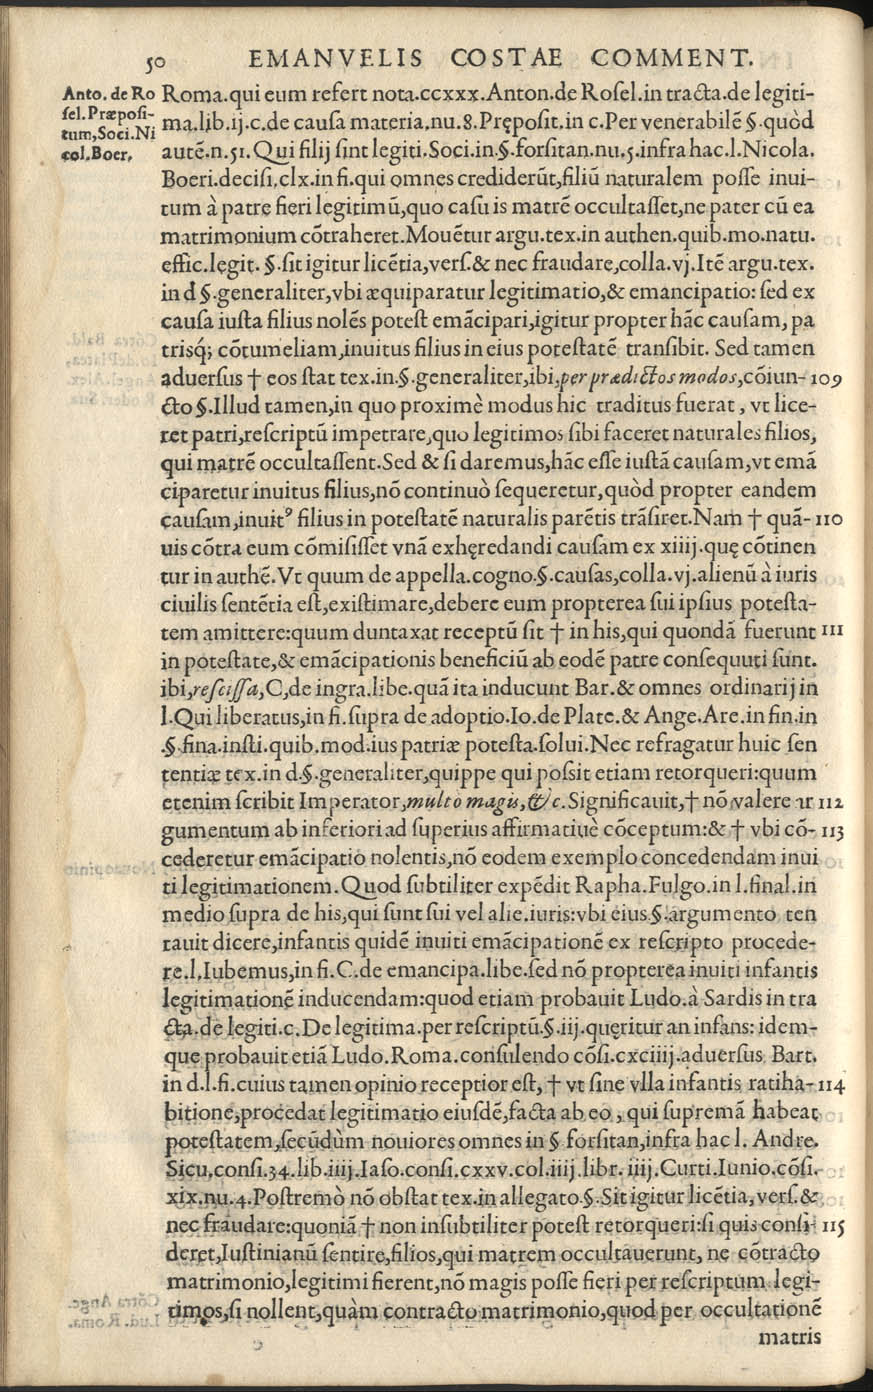 50 EMANVELIS COSTAE COMMENT.
Anto. de Ro
sel. Præposi-
tum, Soci. Ni
col. Boer.
Roma.qui eum refert nota.ccxxx.Anton.de Rosel.in tracta.de legiti-
ma.lib.ij.c.de causa materia.nu.8.Pręposit.in c.Per venerabilẽ §.quòd
autẽ.n.51.Qui filij sint legiti.Soci.in.§.forsitan.nu.5.infra hac.l.Nicola.
Boeri.decisi.clx.in fi.qui omnes crediderũt,filiũ naturalem posse inui-
tum à patre fieri legitimũ,quo casu is matrẽ occultasset,ne pater cũ ea
matrimonium cõtraheret.Mouẽtur argu.tex.in authen.quib.mo.natu.
effic.legit. §.sit igitur licẽtia,vers.& nec fraudare,colla.vj.Itẽ argu.tex.
in d §.generaliter,vbi æquiparatur legitimatio,& emancipatio: sed ex
causa iusta filius nolẽs potest emãcipari,igitur propter hãc causam, pa
trisq́; cõtumeliam,inuitus filius in eius potestatẽ transibit. Sed tamen
aduersus † eos stat tex.in.§.generaliter,ibi,per prædictos modos,cõiun- 109
cto §.Illud tamen,in quo proximè modus hic traditus fuerat, vt lice-
ret patri,rescriptũ impetrare,quo legitimos sibi faceret naturales filios,
qui matrẽ occultassent.Sed & si daremus,hãc esse iustã causam,vt emã
ciparetur inuitus filius,nõ continuò sequeretur,quòd propter eandem
causam,inuitꝰ filius in potestatẽ naturalis parẽtis trãsiret.Nam † quã- 110
uis cõtra eum cõmisisset vnã exhęredandi causam ex xiiij.quę cõtinen
tur in authẽ.Vt quum de appella.cogno.§.causas,colla.vj.alienũ à iuris
ciuilis sentẽtia est,existimare,debere eum propterea sui ipsius potesta-
tem amittere:quum duntaxat receptũ sit † in his,qui quondã fuerunt 111
in potestate,& emãcipationis beneficiũ ab eodẽ patre consequuti sunt.
ibi,rescissa,C,de ingra.libe.quã ita inducunt Bar.& omnes ordinarij in
l.Qui liberatus,in fi.supra de adoptio.Io.de Plate.& Ange.Are.in fin.in
.§.fina.insti.quib.mod.ius patriæ potesta.solui.Nec refragatur huic sen
tentiæ tex.in d.§.generaliter,quippe qui possit etiam retorqueri:quum
etenim scribit Imperator,multo magis,&c.Significauit,† nõ valere ar 112
gumentum ab inferiori ad superius affirmatiuè cõceptum:& † vbi cõ- 113
cederetur emãcipatio nolentis,nõ eodem exemplo concedendam inui
ti legitimationem.Quod subtiliter expẽdit Rapha.Fulgo.in l.final.in
medio supra de his,qui sunt sui vel alie.iuris:vbi eius.§.argumento ten
tauit dicere,infantis quidẽ inuiti emãcipationẽ ex rescripto procede-
re.l.Iubemus,in fi.C.de emancipa.libe.sed nõ propterea inuiti infantis
legitimationẽ inducendam:quod etiam probauit Ludo.à Sardis in tra
cta.de legiti.c.De legitima.per rescriptũ.§.iij.quęritur an infans: idem-
que probauit etiã Ludo.Roma.consulendo cõsi.cxciiij.aduersus Bart.
in d.l.fi.cuius tamen opinio receptior est, † vt sine vlla infantis ratiha- 114
bitione,procedat legitimatio eiusdẽ,facta ab eo, qui supremã habeat
potestatem,secũdùm nouiores omnes in § forsitan,infra hac l. Andre.
Sicu,consi.34.lib.iiij.Iaso.consi.cxxv.col.iiij.libr. iiij.Curti.Iunio.cõsi.
xix.nu.4.Postremò nõ obstat tex.in allegato.§.Sit igitur licẽtia, vers.&
nec fraudare:quoniã † non insubtiliter potest retorqueri:si quis consi- 115
deret,Iustinianũ sentire,filios,qui matrem occultauerunt, ne cõtracto
matrimonio,legitimi fierent,nõ magis posse fieri per rescriptum legi-
timos,si nollent,quàm contracto matrimonio,quod per occultationẽ
matris